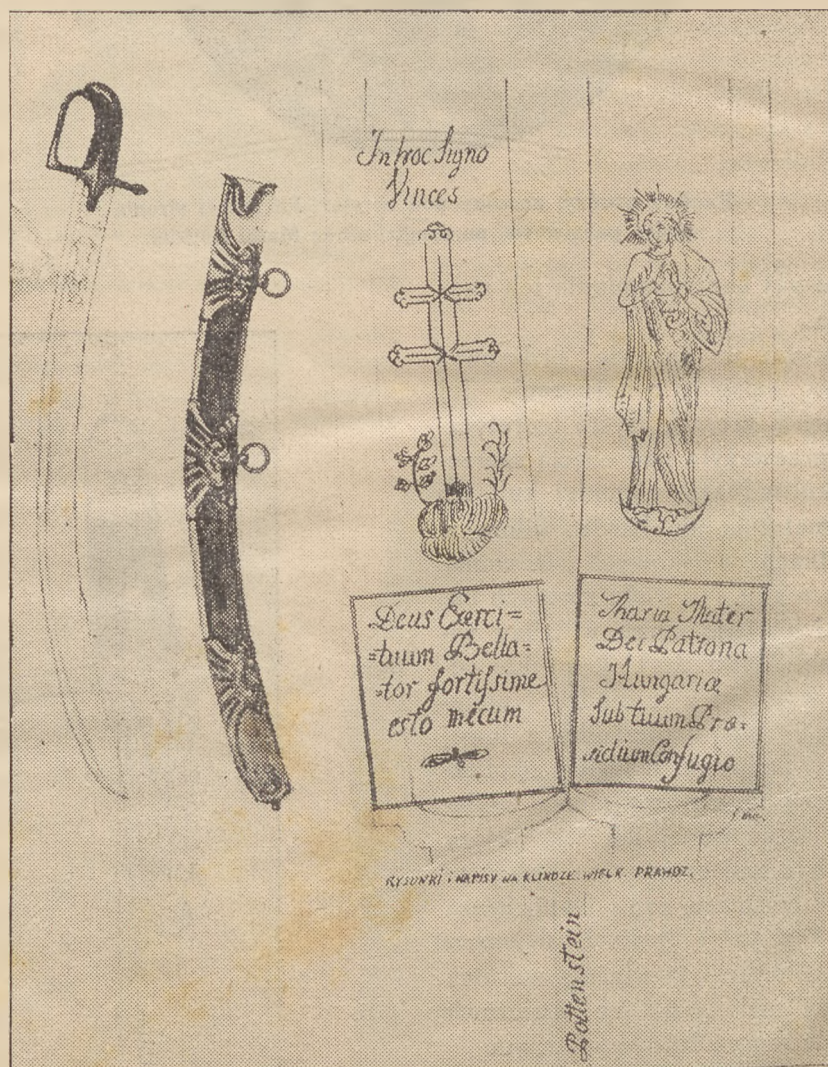 In hoc signo
Vinces
Deus Exerci=
=tuum Bella=
=tor fortissime
esto mecum
Maria Mater
Dei Patrona
Hungariæ
sub tuum Præ=
sidium Confugio
RYSUNKI i NAPISY NA KLINDZE. WIELK. PRAWDZ.
Pottenstein